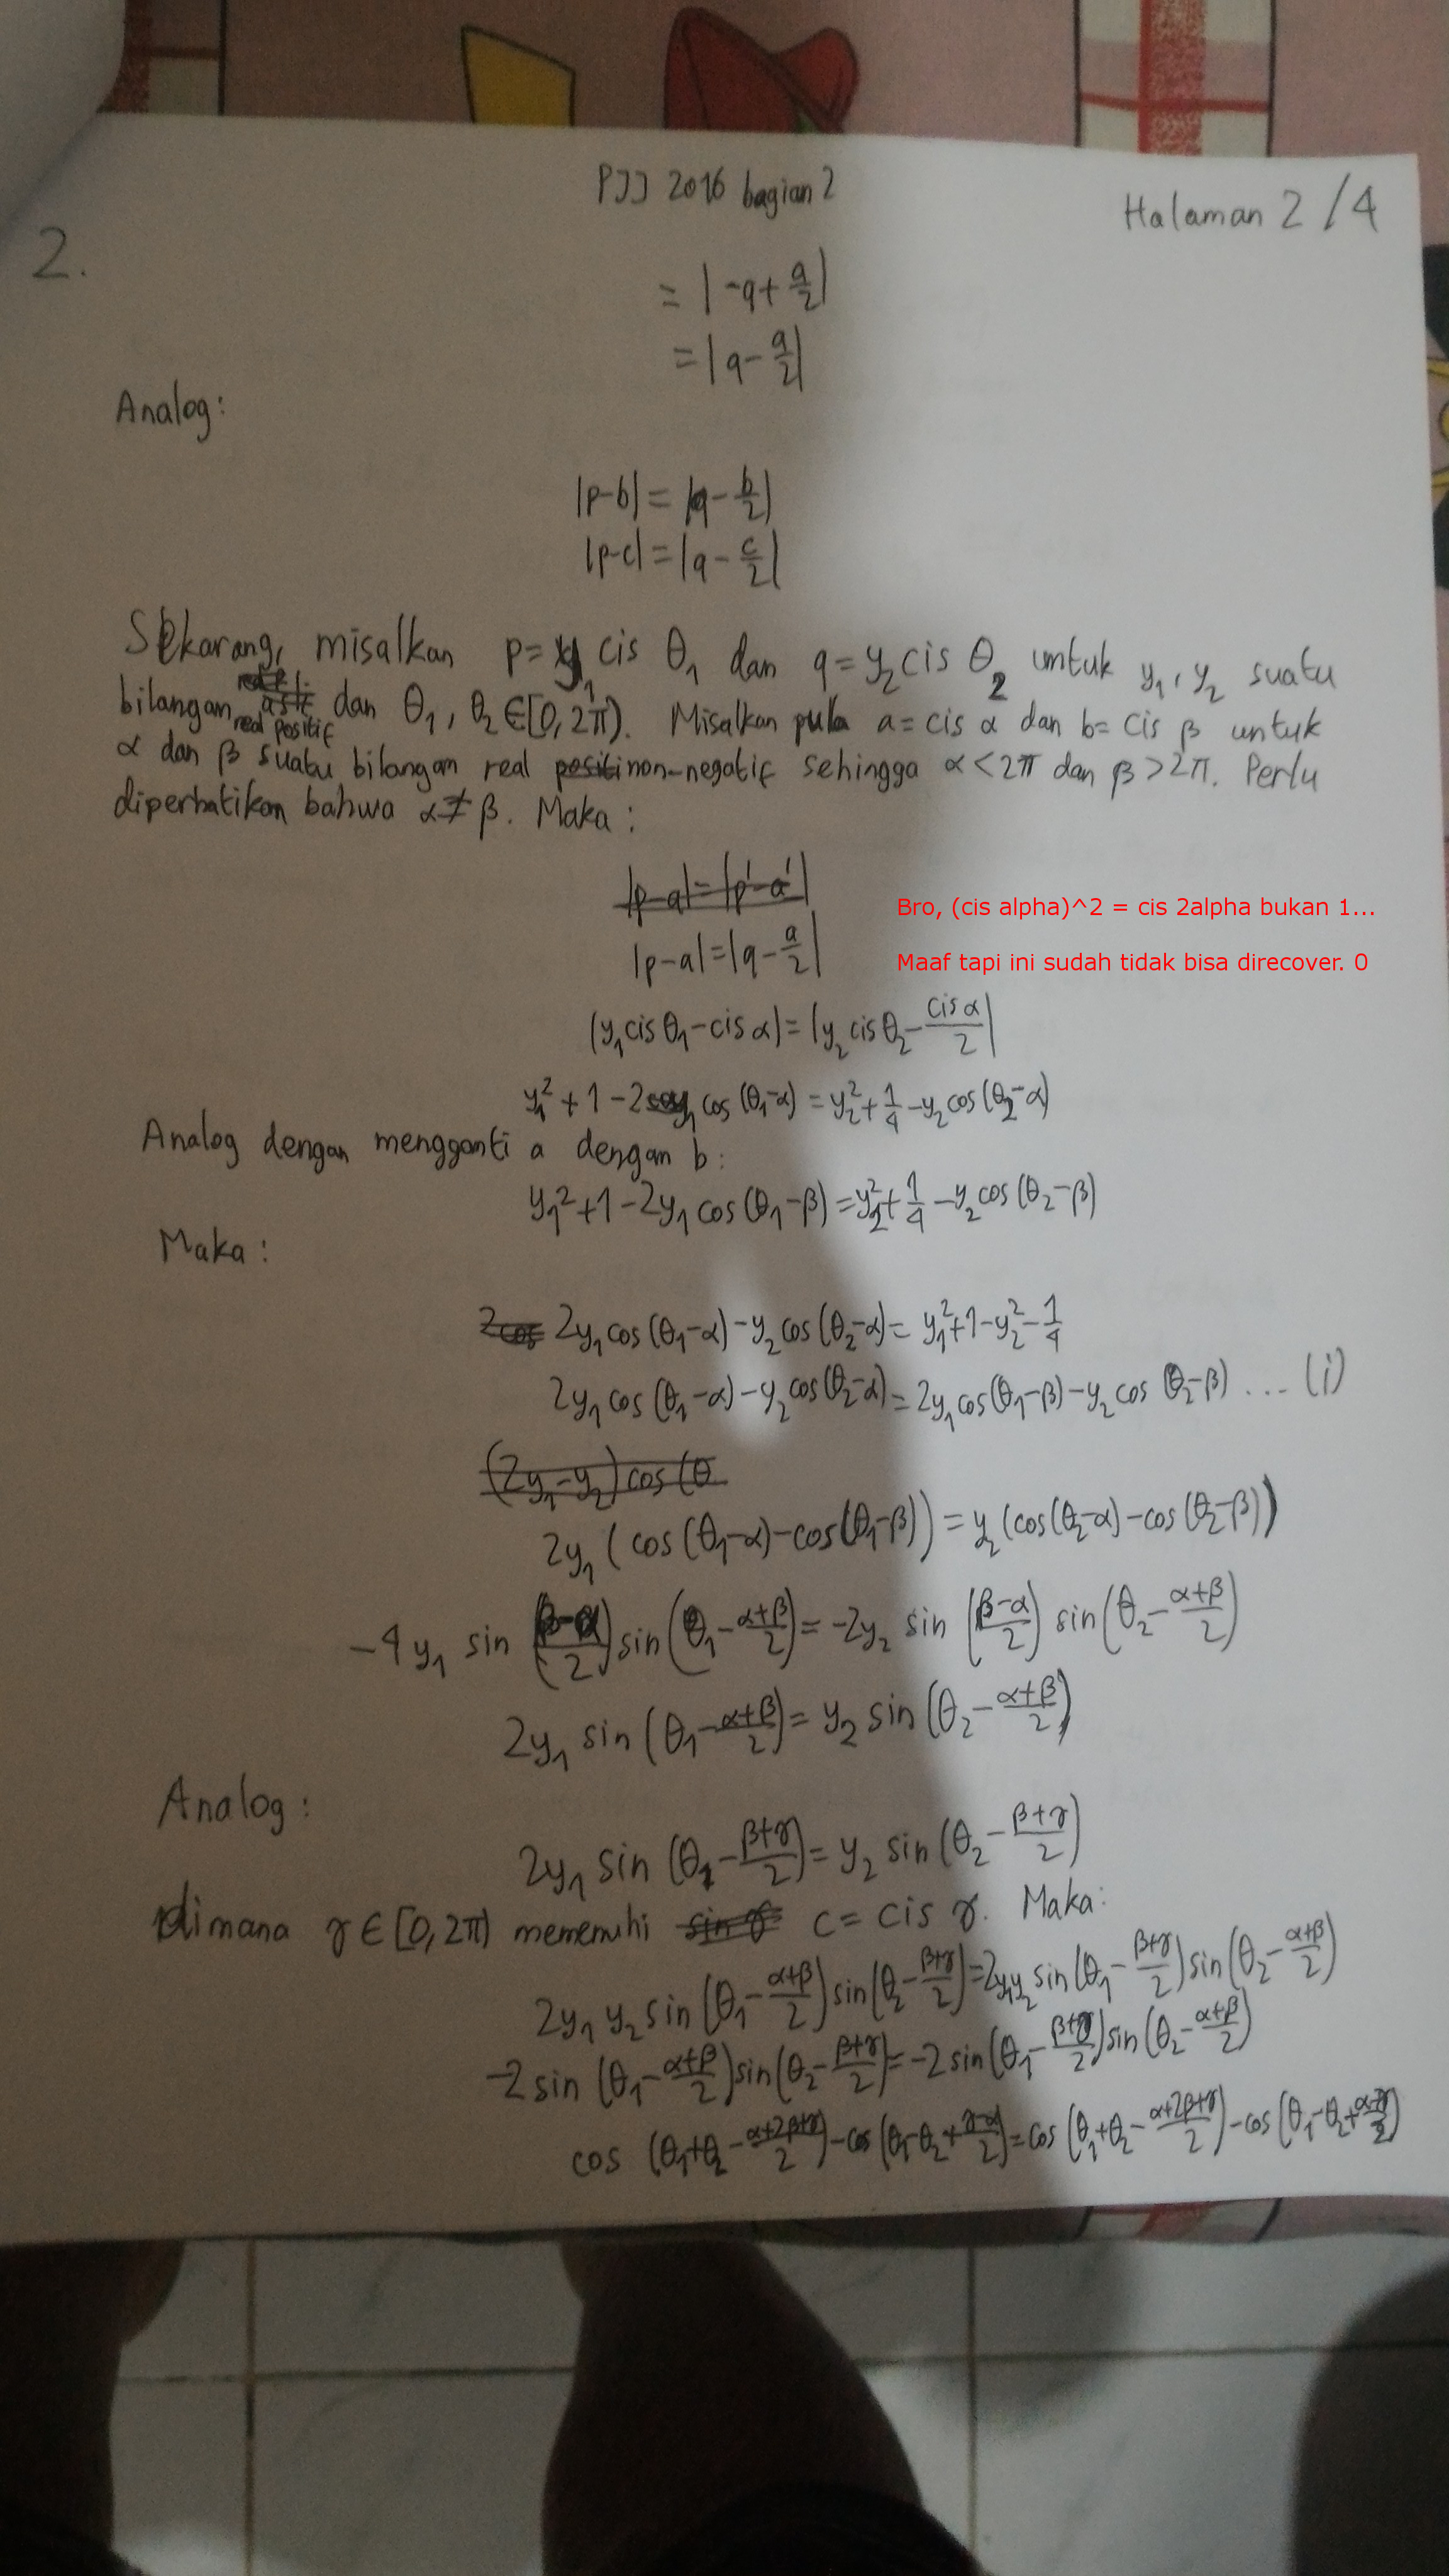 PJJ 2016 bagian 2
Halaman 2/4
2.
= |-q + a/2|
= |q - a/2|
Analog:
|p-b| = |q - b/2|
|p-c| = |q - c/2|
Sekarang, misalkan p = y₁ cis θ₁ dan q = y₂ cis θ₂ untuk y₁, y₂ suatu
bilangan real positif dan θ₁, θ₂ ∈ [0, 2π). Misalkan pula a = cis α dan b = cis β untuk
α dan β suatu bilangan real non-negatif sehingga α < 2π dan β > 2π. Perlu
diperhatikan bahwa α ≠ β. Maka:
|p-a| = |p'-a'|
Bro, (cis alpha)^2 = cis 2alpha bukan 1...
|p-a| = |q - a/2|
Maaf tapi ini sudah tidak bisa direcover. 0
|y₁ cis θ₁ - cis α| = |y₂ cis θ₂ - cis α/2|
y₁² + 1 - 2y₁ cos (θ₁-α) = y₂² + 1/4 - y₂ cos (θ₂-α)
Analog dengan mengganti a dengan b:
y₁² + 1 - 2y₁ cos (θ₁-β) = y₂² + 1/4 - y₂ cos (θ₂-β)
Maka:
2y₁ cos (θ₁-α) - y₂ cos (θ₂-α) = y₁² + 1 - y₂² - 1/4
2y₁ cos (θ₁-α) - y₂ cos (θ₂-α) = 2y₁ cos (θ₁-β) - y₂ cos (θ₂-β) ... (i)
(2y₁-y₂) cos (θ
2y₁ (cos (θ₁-α) - cos (θ₁-β)) = y₂ (cos (θ₂-α) - cos (θ₂-β))
-4y₁ sin ((β-α)/2) sin (θ₁ - (α+β)/2) = -2y₂ sin ((β-α)/2) sin (θ₂ - (α+β)/2)
2y₁ sin (θ₁ - (α+β)/2) = y₂ sin (θ₂ - (α+β)/2)
Analog:
2y₁ sin (θ₁ - (β+γ)/2) = y₂ sin (θ₂ - (β+γ)/2)
dimana γ ∈ [0, 2π) memenuhi c = cis γ. Maka:
2y₁y₂ sin (θ₁ - (α+β)/2) sin (θ₂ - (β+γ)/2) = 2y₁y₂ sin (θ₁ - (β+γ)/2) sin (θ₂ - (α+β)/2)
-2 sin (θ₁ - (α+β)/2) sin (θ₂ - (β+γ)/2) = -2 sin (θ₁ - (β+γ)/2) sin (θ₂ - (α+β)/2)
cos (θ₁+θ₂ - (α+2β+γ)/2) - cos (θ₁-θ₂ + (γ-α)/2) = cos (θ₁+θ₂ - (α+2β+γ)/2) - cos (θ₁-θ₂ + (α-γ)/2)